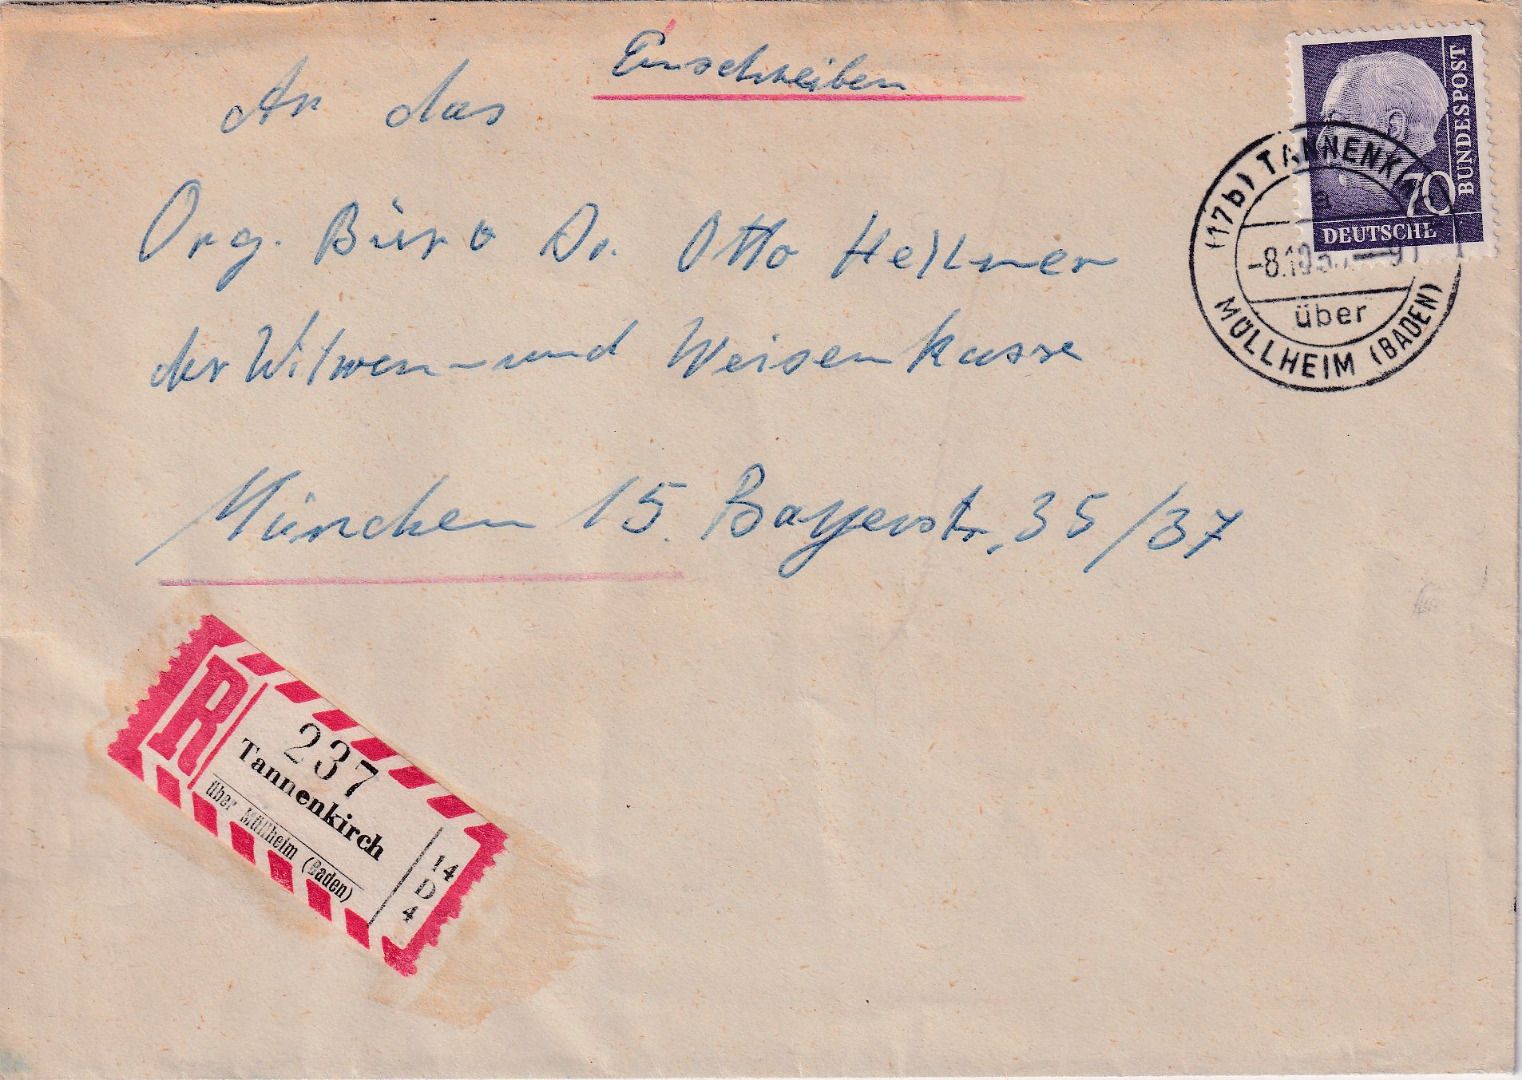 Einschreiben
An das
Org. Büro Dr. Otto Hellner
der Witwen- und Weisenkasse
München 15. Bayerstr. 35/37
BUNDESPOST
70
DEUTSCHE
(17b) TANNENKI
a
-8.10.5
über
MÜLLHEIM (BADEN)
R
237
Tannenkirch
über Müllheim (Baden)
14
D
4